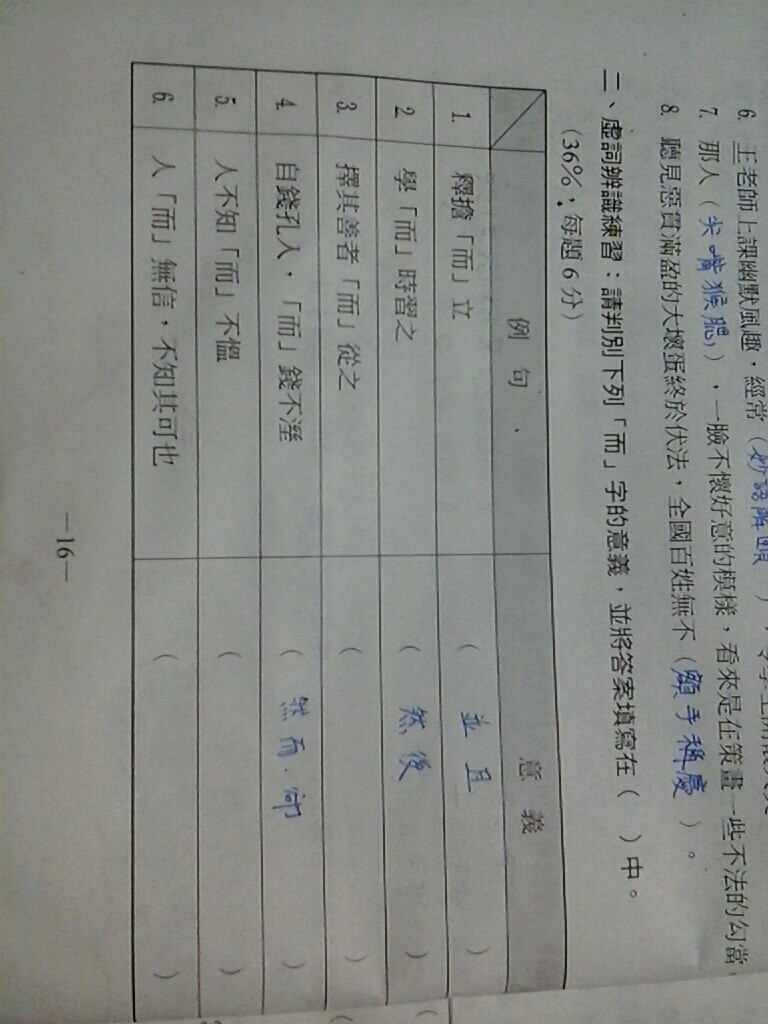 6. 王老師上課幽默風趣，經常（妙語解頤），
7. 那人（尖嘴猴腮），一臉不懷好意的模樣，看來是在策畫一些不法的勾當。
8. 聽見惡貫滿盈的大壞蛋終於伏法，全國百姓無不（額手稱慶）。
二、虛詞辨識練習：請判別下列「而」字的意義，並將答案填寫在（ ）中。
（36%，每題 6 分）
例句、 意義
1. 釋擔「而」立 （並且）
2. 學「而」時習之 （然後）
3. 擇其善者「而」從之 （ ）
4. 自錢孔入，「而」錢不溼 （然而．卻）
5. 人不知「而」不慍 （ ）
6. 人「而」無信，不知其可也 （ ）
—16—